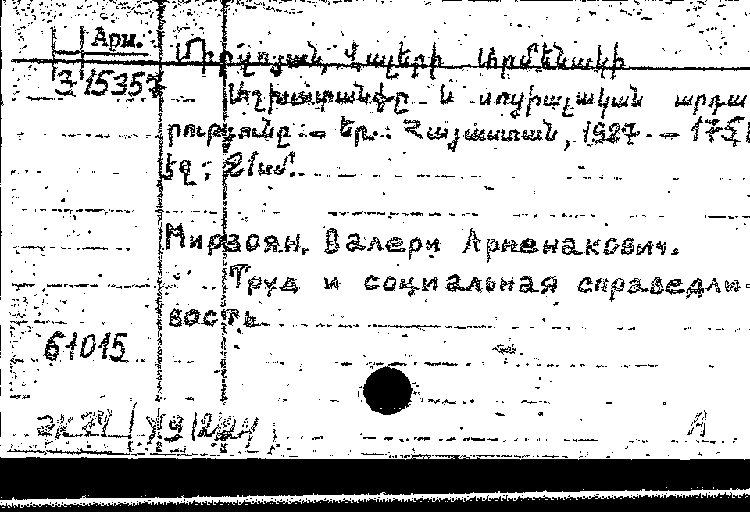 Арм.
Միրզոյան, Վալերի Արմենակի
315357
Աշխատանքը և սոցիալական արդա
րությունը. – Եր.: Հայաստան, 1987. – 175[1]
էջ; 21սմ.
Мирзоян, Валери Арменакович.
Труд и социальная справедли-
вость
61015
А